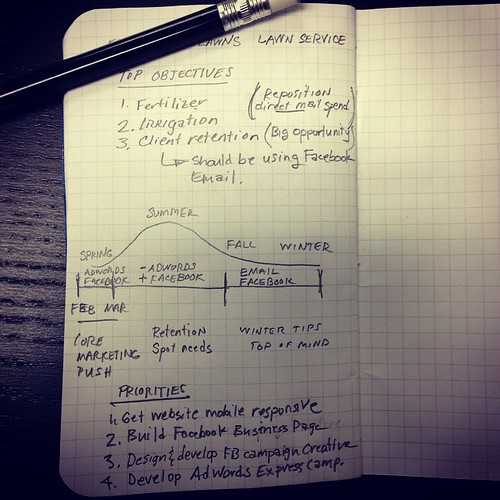 LAWNS LAWN SERVICE
TOP OBJECTIVES
1. Fertilizer
2. IRRIGATION
3. Client retention (Big opportunity)
(Reposition
direct mail spend)
↳ Should be using Facebook
Email.
SUMMER
SPRING
FALL WINTER
ADWORDS
FACEBOOK
- ADWORDS
+ FACEBOOK
EMAIL
FACEBOOK
FEB MAR
CORE
MARKETING
PUSH
Retention
Spot needs
WINTER TIPS
TOP OF MIND
PRIORITIES
1. Get website mobile responsive
2. Build Facebook Business Page
3. Design & develop FB campaign Creative
4. Develop AdWords Express Camp.